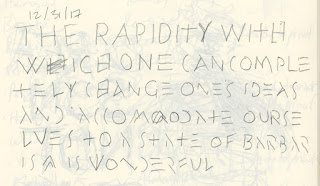 12/31/17
THE RAPIDITY WITH
WHICH ONE CAN COMPLE
TELY CHANGE ONES IDEAS
AND ACCOMODATE OURSE
LVES TO A STATE OF BARBAR
ISM IS WONDERFUL